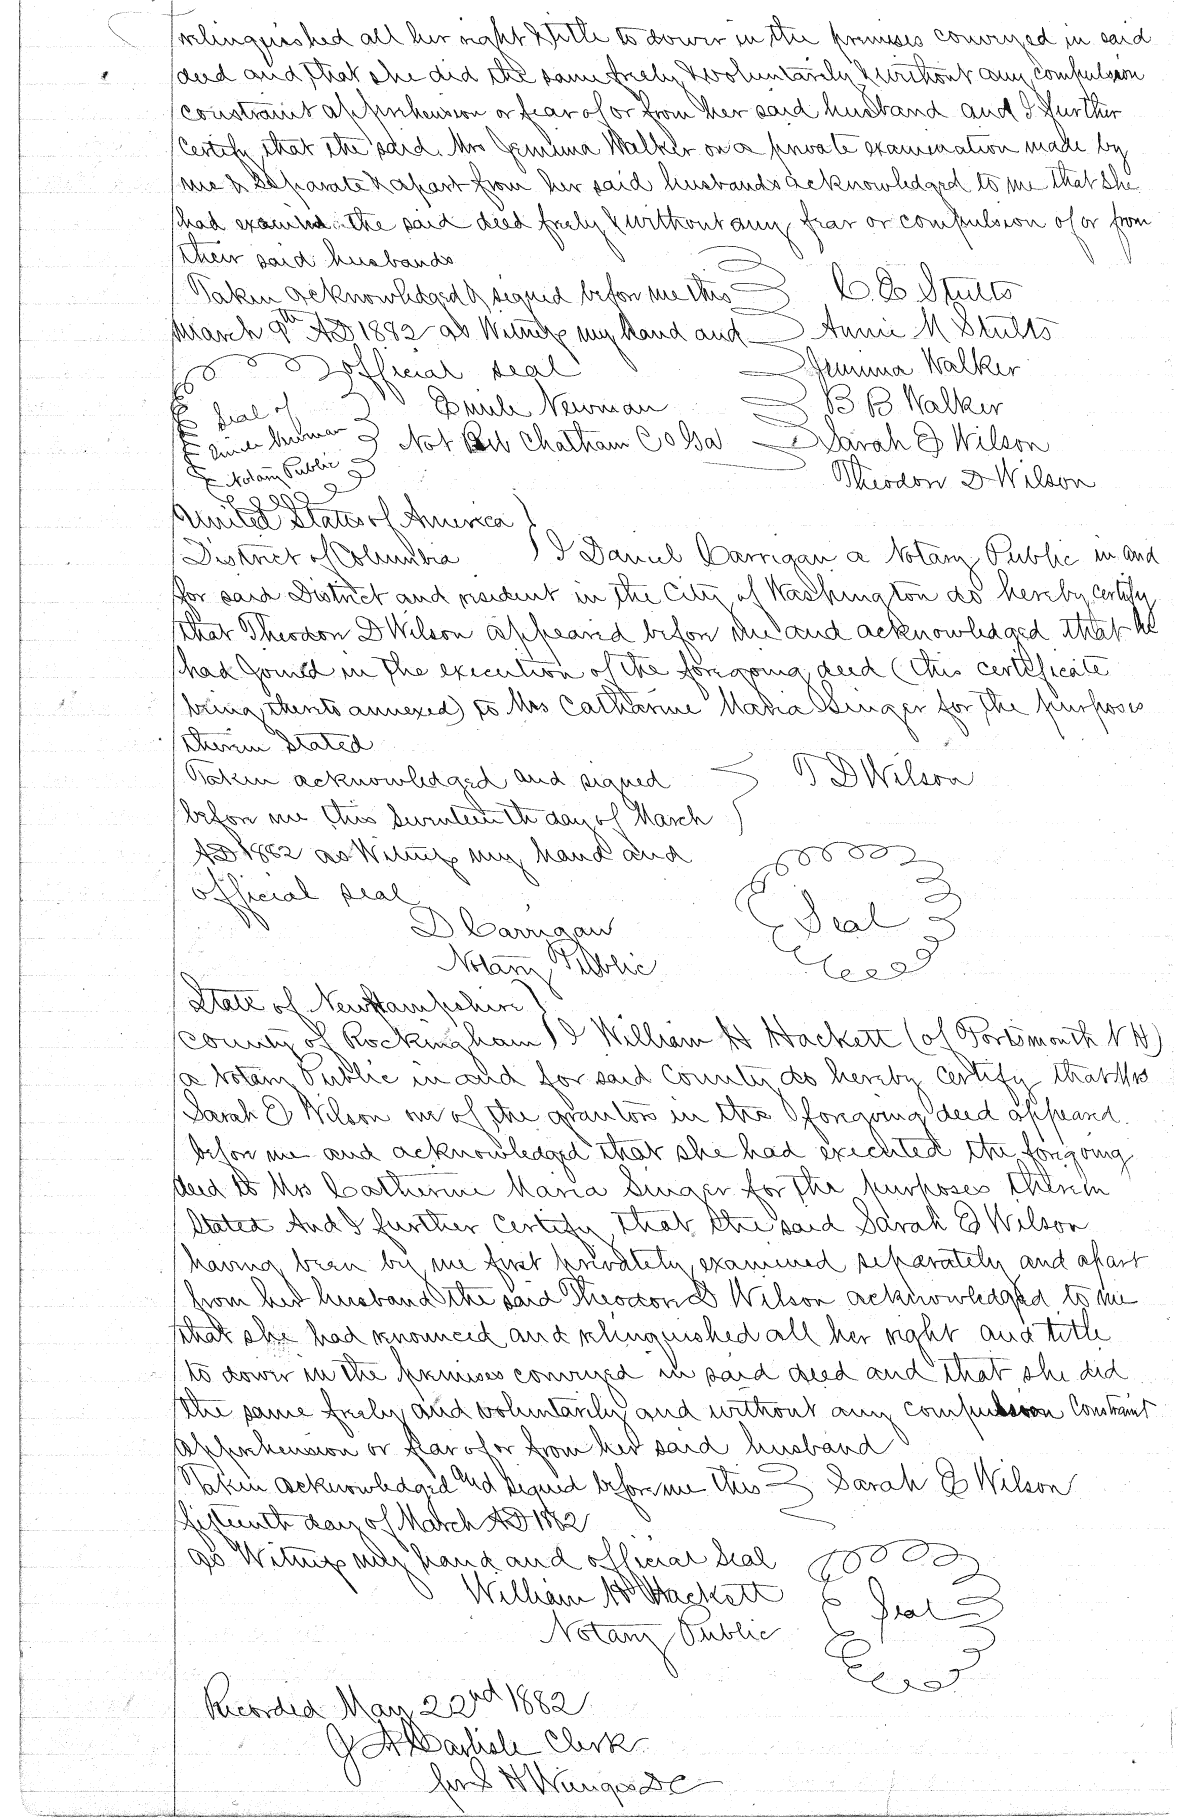 relinquished all her right & title to dower in the premises conveyed in said
deed and that she did the same freely & voluntarily & without any compulsion
constraint apprehension or fear of or from her said husband and I further
certify that the said Mrs Jemima Walker on a private examination made by
me & separate & apart from her said husbands acknowledged to me that she
had the said deed freely & without any fear or compulsion of or from
their said husbands
Taken acknowledged & signed before me this C E Stults
March 9th AD 1882 as Witness my hand and Annie M Stults
official seal Jemima Walker
Seal of Emile Newman B B Walker
Emile Newman Not Pub Chatham Co Ga Sarah E Wilson
Notary Public Theodore D Wilson
United States of America
District of Columbia I Daniel Carrigan a Notary Public in and
for said District and resident in the City of Washington do hereby certify
that Theodore D Wilson appeared before me and acknowledged that he
had joined in the execution of the foregoing deed (this certificate
being thereto annexed) to Mrs Catharine Maria Singer for the purposes
therein stated
Taken acknowledged and signed T D Wilson
before me this Seventeenth day of March
AD 1882 as Witness my hand and
official seal Seal
D Carrigan
Notary Public
State of New Hampshire
County of Rockingham I William H Hackett (of Portsmouth N H)
a Notary Public in and for said County do hereby certify that Mrs
Sarah E Wilson one of the grantors in the foregoing deed appeared
before me and acknowledged that she had executed the foregoing
deed to Mrs Catherine Maria Singer for the purposes therein
stated And I further certify that the said Sarah E Wilson
having been by me first privately examined separately and apart
from her husband the said Theodore D Wilson acknowledged to me
that she had renounced and relinquished all her right and title
to dower in the premises conveyed in said deed and that she did
the same freely and voluntarily and without any compulsion constraint
apprehension or fear of or from her said husband
Taken acknowledged and signed before me this Sarah E Wilson
fifteenth day of March AD 1882
as Witness my hand and official seal
William H Hackett Seal
Notary Public
Recorded May 22nd 1882
Carlisle Clerk